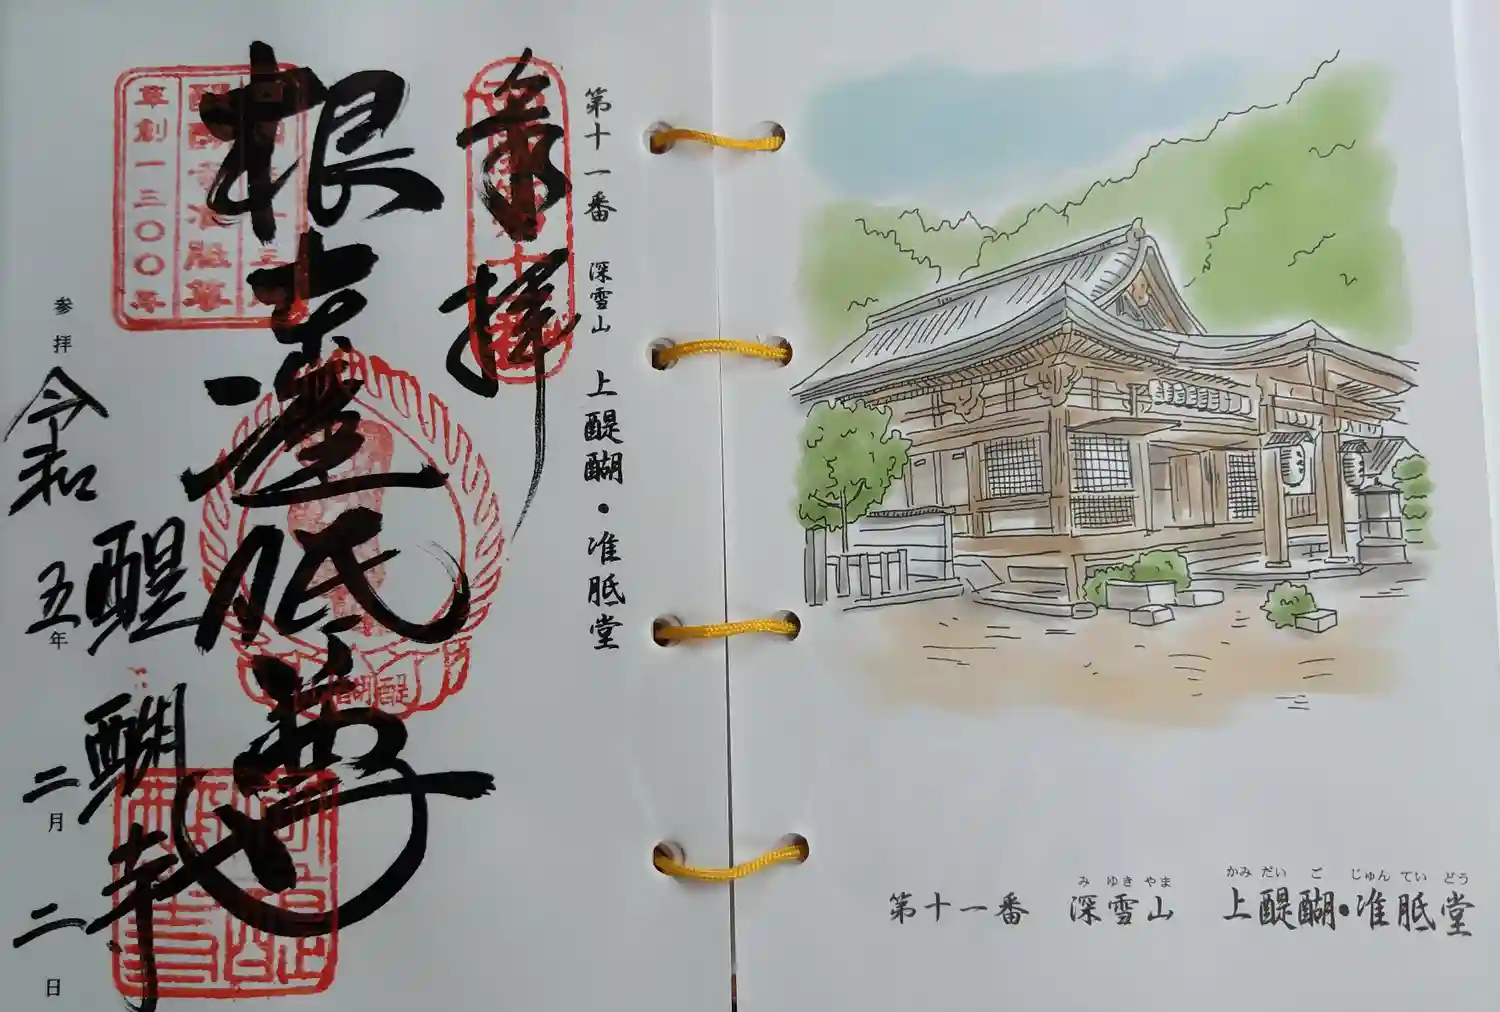 第十一番 深雪山 上醍醐・准胝堂
奉拝
根本准胝尊
醍醐寺
参拝
令和五年二月二日
草創一三〇〇年
醍醐寺准胝尊
醍醐
第十一番 深雪山 上醍醐・准胝堂
み ゆき やま かみ だい ご じゅん てい どう